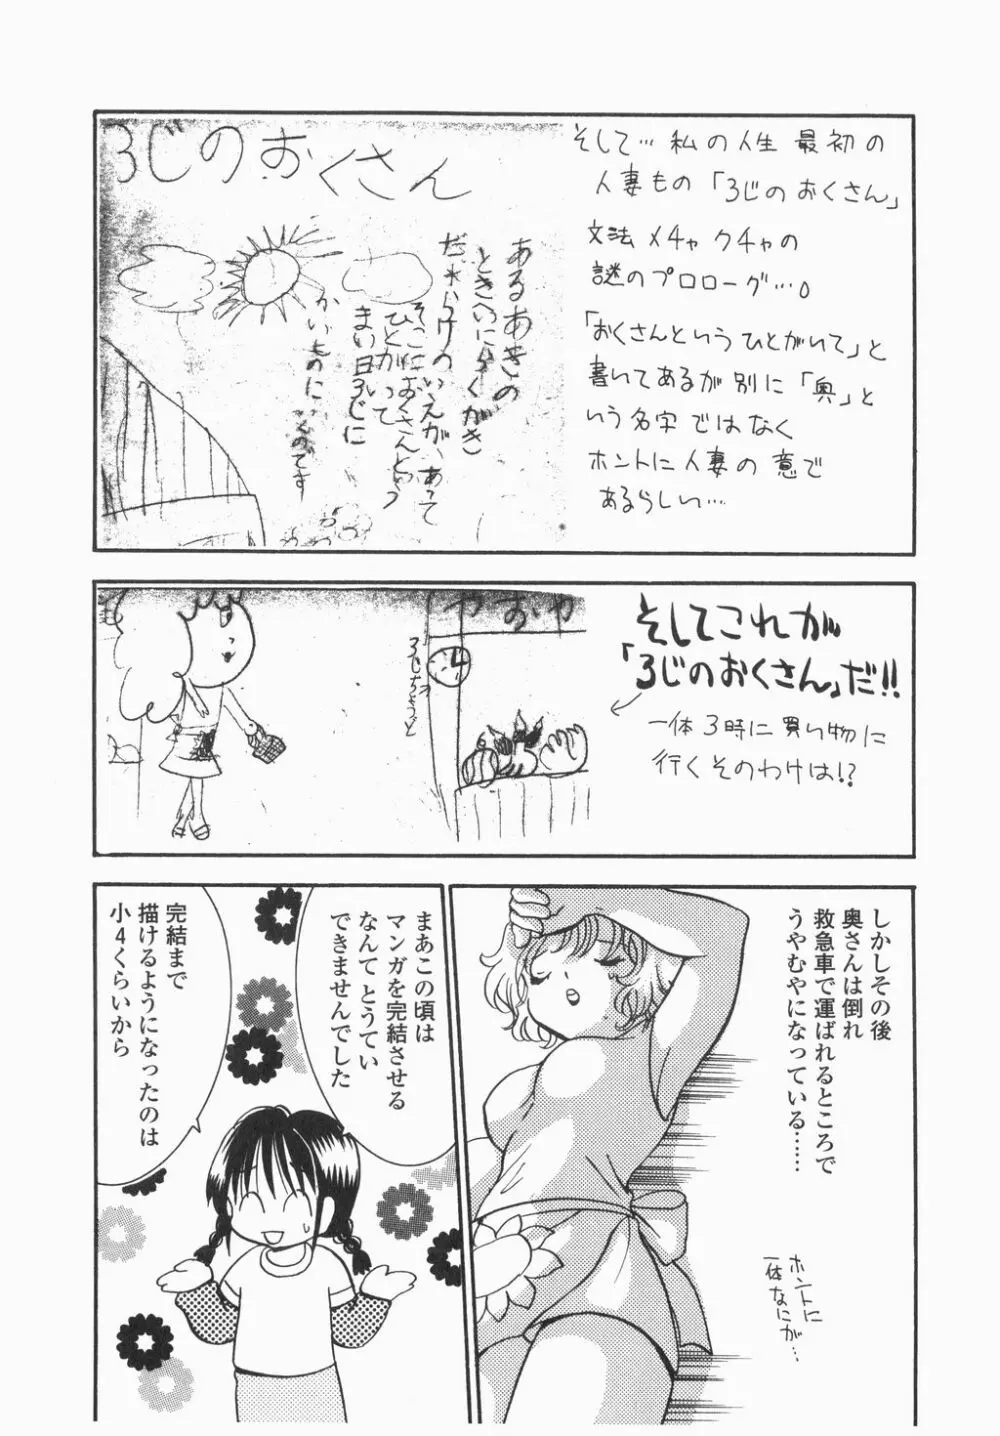 そして…私の人生 最初の
人妻もの「3じのおくさん」
文法メチャクチャの
謎のプロローグ…。
「おくさんというひとがいて」と
書いてあるが別に「奥」と
いう名字ではなく
ホントに人妻の意で
あるらしい…
3じのおくさん
あるあきの
ときへいにらくがき
だ
らけのいえが、あって
そこにおくさんという
ひとがいて
まい日3じに
かいものに
いくのです
そしてこれが
「3じのおくさん」だ!!
一体3時に買い物に
行くそのわけは!?
ヤおヤ
3じちょうど
しかしその後
奥さんは倒れ
救急車で運ばれるところで
うやむやになっている……
ホントに
一体なにが…
まあこの頃は
マンガを完結させる
なんてとうてい
できませんでした
完結まで
描けるようになったのは
小4くらいから